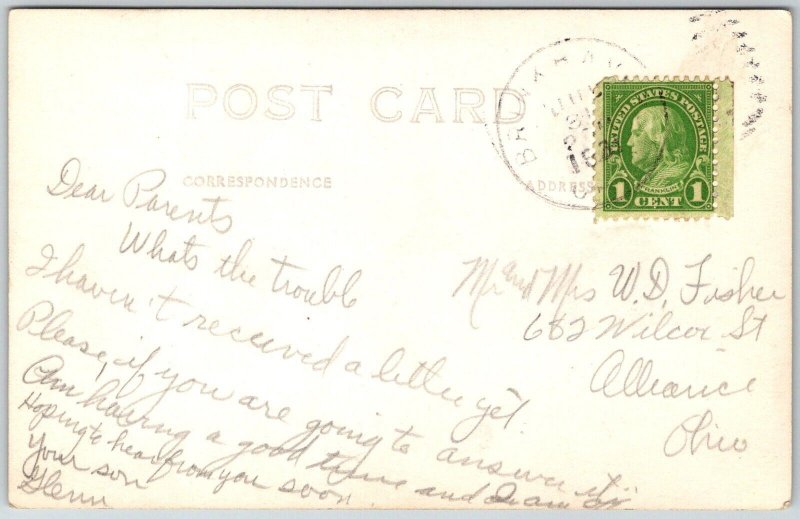 POST CARD
CORRESPONDENCE
ADDRESS
UNITED STATES POSTAGE
FRANKLIN
1 CENT 1
Dear Parents
Whats the trouble
I haven't received a letter yet.
Please, if you are going to answer it
Am having a good time and
Hoping to hear from you soon.
Your son
Glenn
Mr and Mrs W.D. Fisher
682 Wilcox St
Alliance
Ohio